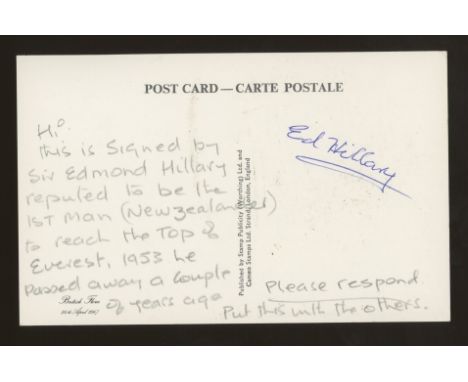 POST CARD — CARTE POSTALE
Hi
this is signed by
Sir Edmond Hillary
reputed to be the
1st Man (Newzealander)
to reach the Top of
Everest, 1953 he
passed away a couple
of years ago
British Flora
24th April 1967
Published by Stamp Publicity (Worthing) Ltd. and
Cameo Stamps Ltd. Strand, London, England
Ed Hillary
Please respond
Put this with the others.